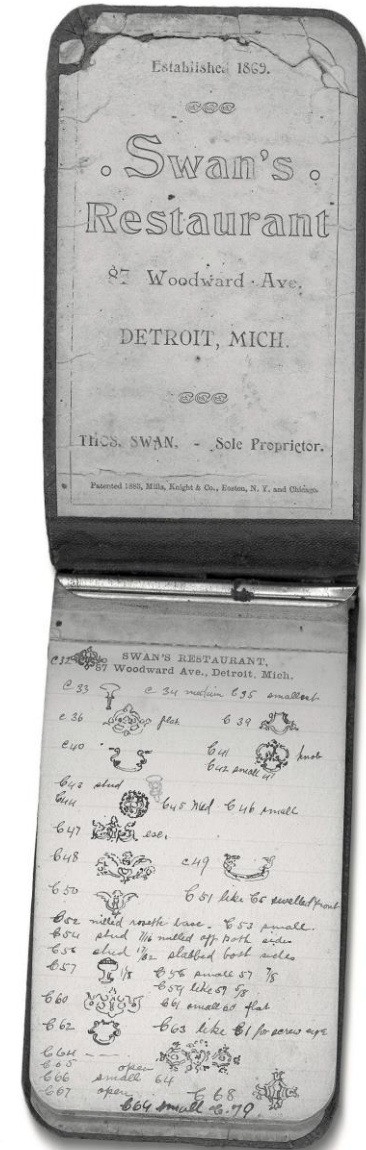 Established 1869.
Swan's
Restaurant
87 Woodward Ave.
DETROIT, MICH.
THOS. SWAN. - Sole Proprietor.
Patented 1883, Mills, Knight & Co., Boston, N. Y. and Chicago.
SWAN'S RESTAURANT,
87 Woodward Ave., Detroit, Mich.
C 33 C 34 medium C 35 smallest
C 36 flat C 39
C 40 C 41 knob
C 42 small 41
C 43 stud
C 44 C 45 med C 46 small
C 47 esc.
C 48 C 49
C 50 C 51 like C 5 swelled front
C 52 milled base. C 53 small.
C 54 stud 7/16 milled off both sides
C 56 stud 17/32 slabbed both sides
C 57 1/8 C 58 small 57 7/8
C 59 like 57 5/8
C 60 C 61 small 60 flat
C 62 C 63 like C 1 for screw eye
C 64
C 65 open
C 66 small 64
C 67 open C 68
small C. 79